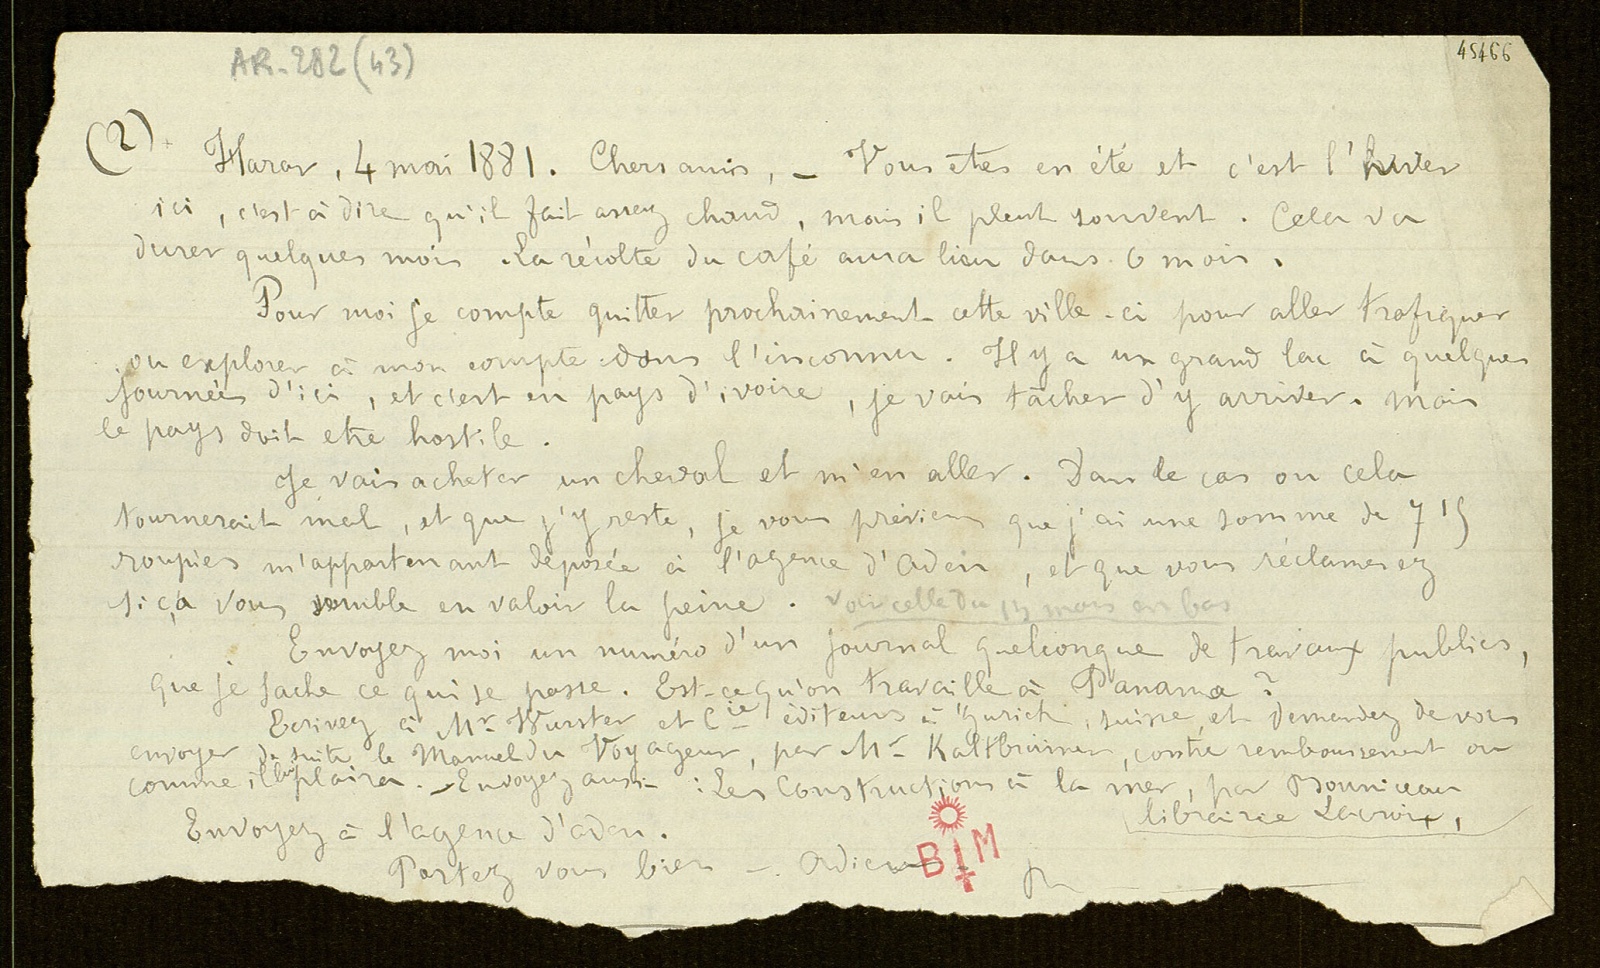 AR-282 (43)
45466
(2) Harar, 4 mai 1881. Chers amis, — Vous êtes en été et c'est l'hiver
ici, c'est à dire qu'il fait assez chaud, mais il pleut souvent. Cela va
durer quelques mois. La récolte du café aura lieu dans 6 mois.
Pour moi je compte quitter prochainement cette ville-ci pour aller trafiquer
ou explorer à mon compte dans l'inconnu. Il y a un grand lac à quelques
journées d'ici, et c'est en pays d'ivoire, je vais tâcher d'y arriver. Mais
le pays doit etre hostile.
Je vais acheter un cheval et m'en aller. Dans le cas ou cela
tournerait mal, et que j'y reste, je vous préviens que j'ai une somme de 715
roupies m'appartenant déposée à l'agence d'Aden, et que vous réclamerez
si ça vous semble en valoir la peine. Voir celle du mars en bas
Envoyez moi un numéro d'un journal quelconque de travaux publics,
que je sache ce qui se passe. Est-ce qu'on travaille à Panama?
Ecrivez à Mr. Wurster et Cie éditeurs à Zurich, suisse, et demandez de vous
envoyer de suite le Manuel du Voyageur, par Mr Kaltbrünner, contre remboursement ou
comme il lui plaira. — Envoyez aussi: Les Constructions à la mer, par Bouniceau
librairie Lacroix,
Envoyez à l'agence d'aden.
Portez vous bien —. Adieu
B M